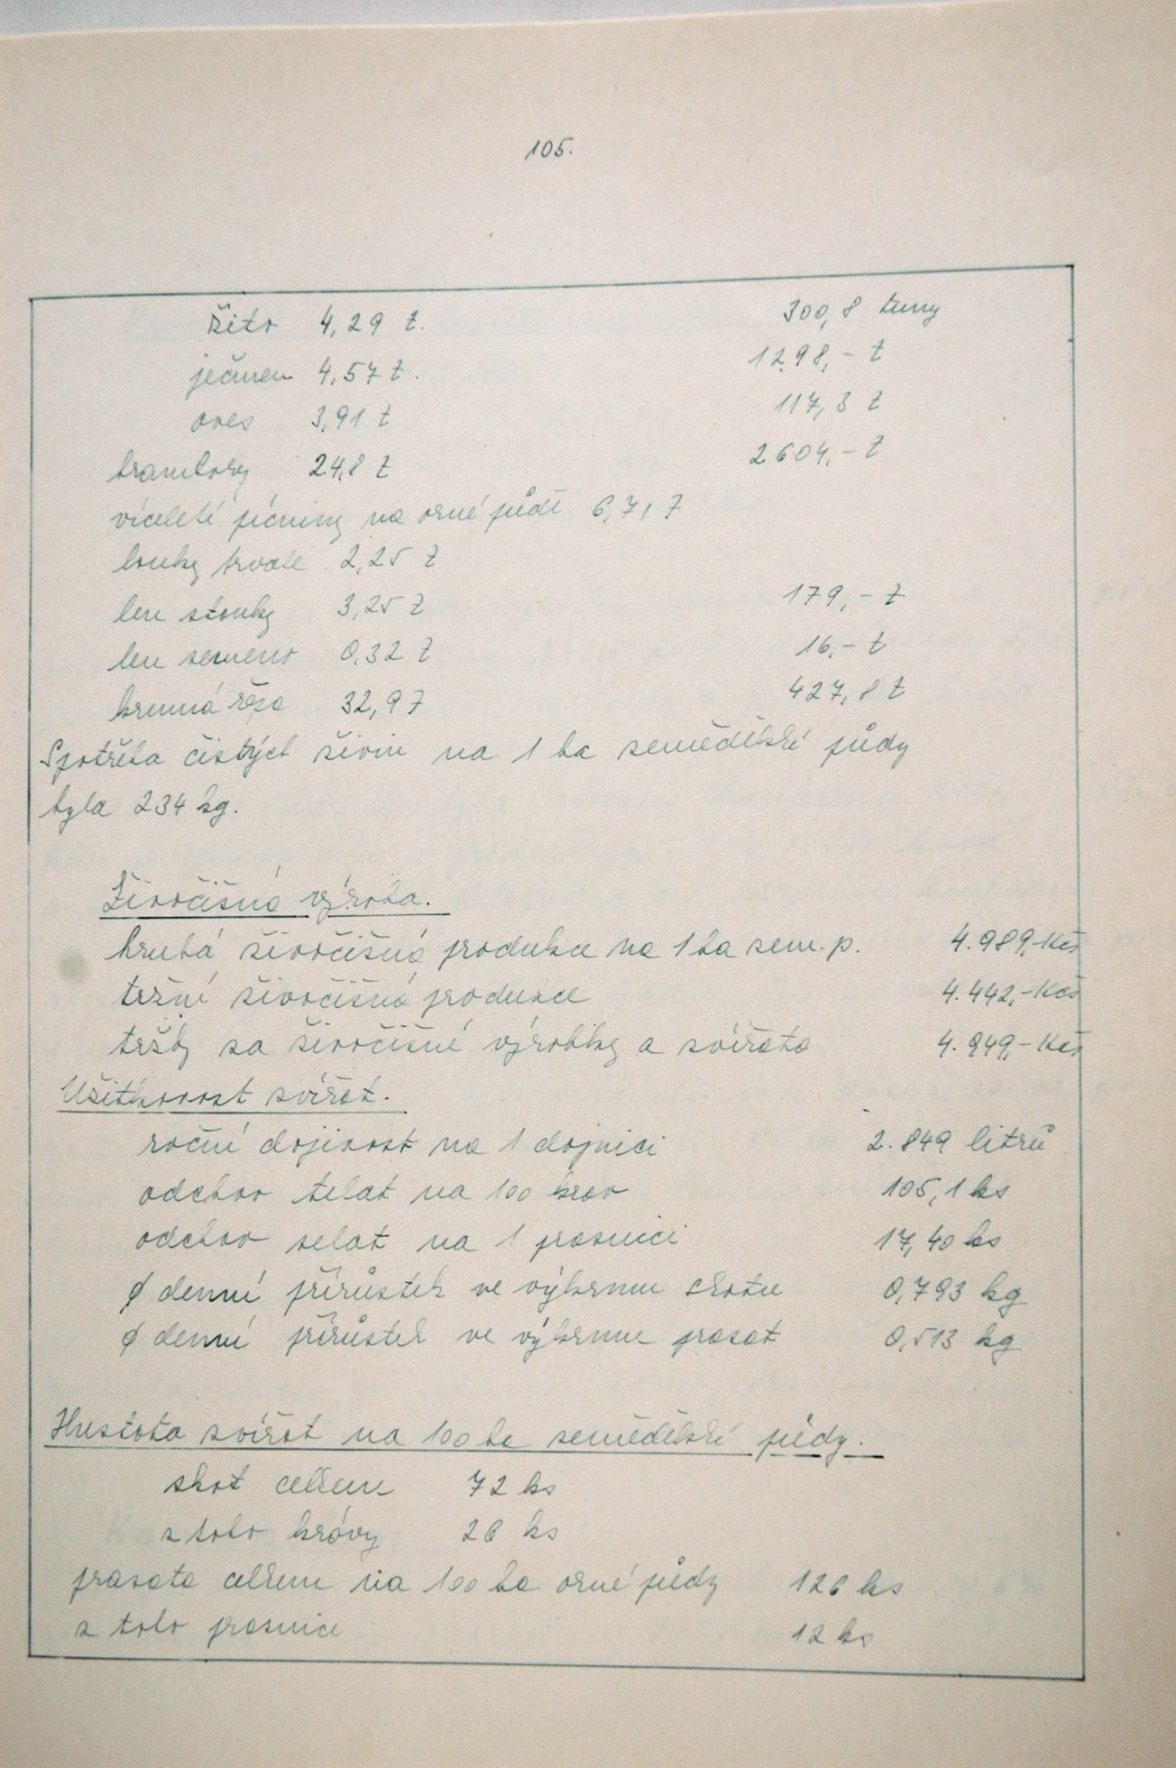 105.
žito 4,29 t. 300,8 tuny
ječmen 4,57 t. 1298,- t
oves 3,91 t 117,3 t
brambory 24,8 t 2604,- t
víceleté pícniny na orné půdě 6,71 t
louky trvalé 2,25 t
len stonky 3,25 t 179,- t
len semeno 0,32 t 16,- t
krmná řepa 32,9 t 427,8 t
Spotřeba čistých živin na 1 ha zemědělské půdy
byla 234 kg.
Živočišná výroba.
hrubá živočišná produkce na 1 ha zem. p. 4.989,-Kčs
tržní živočišná produkce 4.442,-Kčs
tržby za živočišné výrobky a zvířata 4.949,-Kčs
Užitkovost zvířat.
roční dojivost na 1 dojnici 2.849 litrů
odchov telat na 100 krav 105,1 ks
odchov selat na 1 prasnici 17,40 ks
ø denní přírůstek ve výkrmu skotu 0,793 kg
ø denní přírůstek ve výkrmu prasat 0,513 kg
Hustota zvířat na 100 ha zemědělské půdy.
skot celkem 72 ks
z toho krávy 26 ks
prasata celkem na 100 ha orné půdy 126 ks
z toho prasnice 12 ks